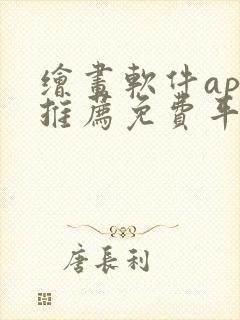 繪畫軟件ap
推薦免費平
唐長利